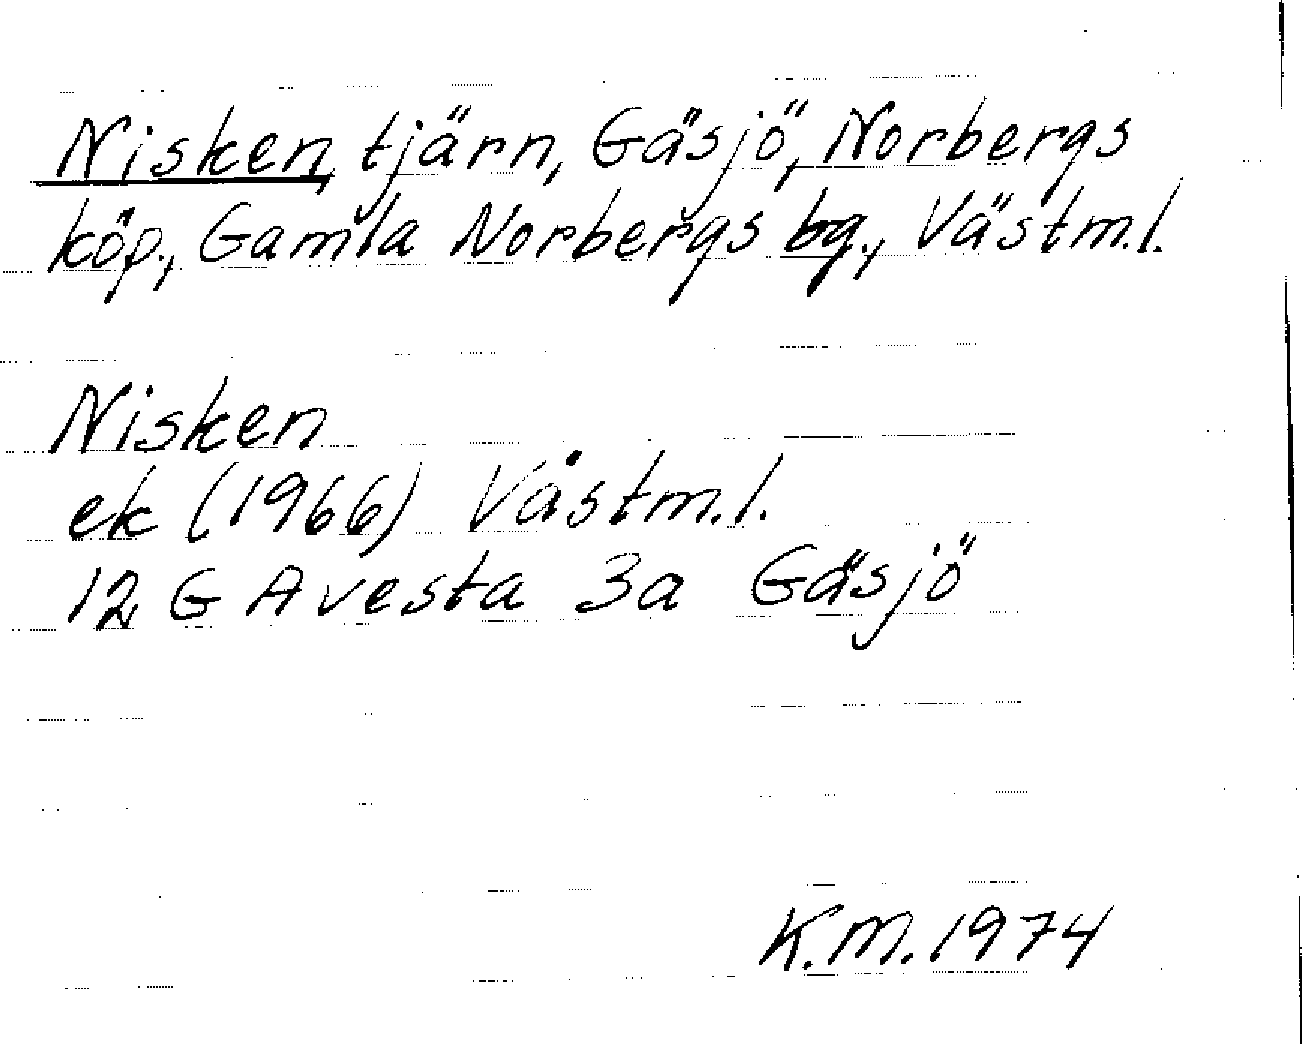 Nisken, tjärn, Gäsjö, Norbergs
köp., Gamla Norbergs bg., Västm.l.
Nisken
ek (1966) Västm.l.
12 G Avesta 3a Gäsjö
K.M. 1974